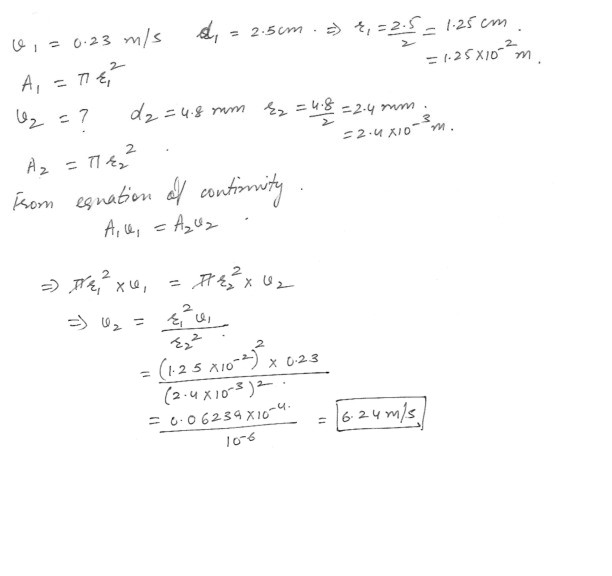 v₁ = 0.23 m/s d₁ = 2.5cm. ⇒ r₁ = 2.5/2 = 1.25 cm.
= 1.25×10⁻² m.
A₁ = πr₁²
v₂ = ? d₂ = 4.8 mm r₂ = 4.8/2 = 2.4 mm.
= 2.4 ×10⁻³ m.
A₂ = πr₂²
From equation of continuity.
A₁v₁ = A₂v₂
⇒ πr₁² × v₁ = πr₂² × v₂
⇒ v₂ = r₁²v₁ / r₂²
= (1.25 ×10⁻²)² × 0.23 / (2.4 ×10⁻³)²
= 0.06239×10⁻⁴ / 10⁻⁶ = 6.24 m/s